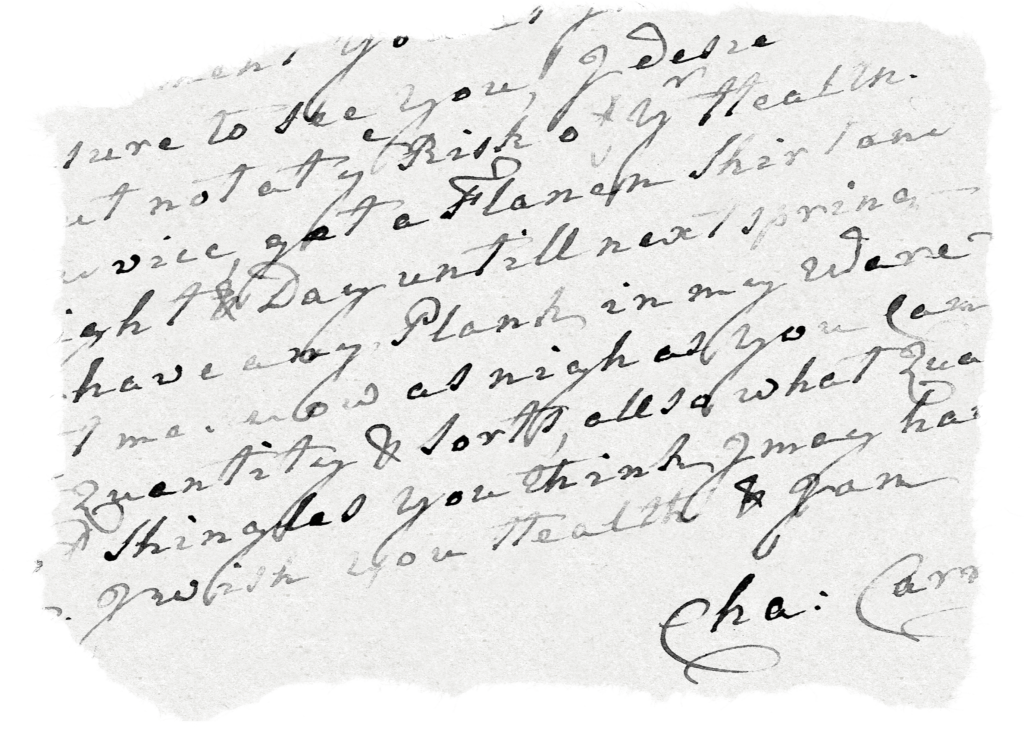 sure to see you, I desire
not at ye Risk of yr Health.
vice, get a Flanen Shirt
& Day untill next spring
have any Plank in my
as nigh as you Can
Quantity & Sorts, allso what
Shingles you think I may
I wish you Health & I am
Cha: Carr